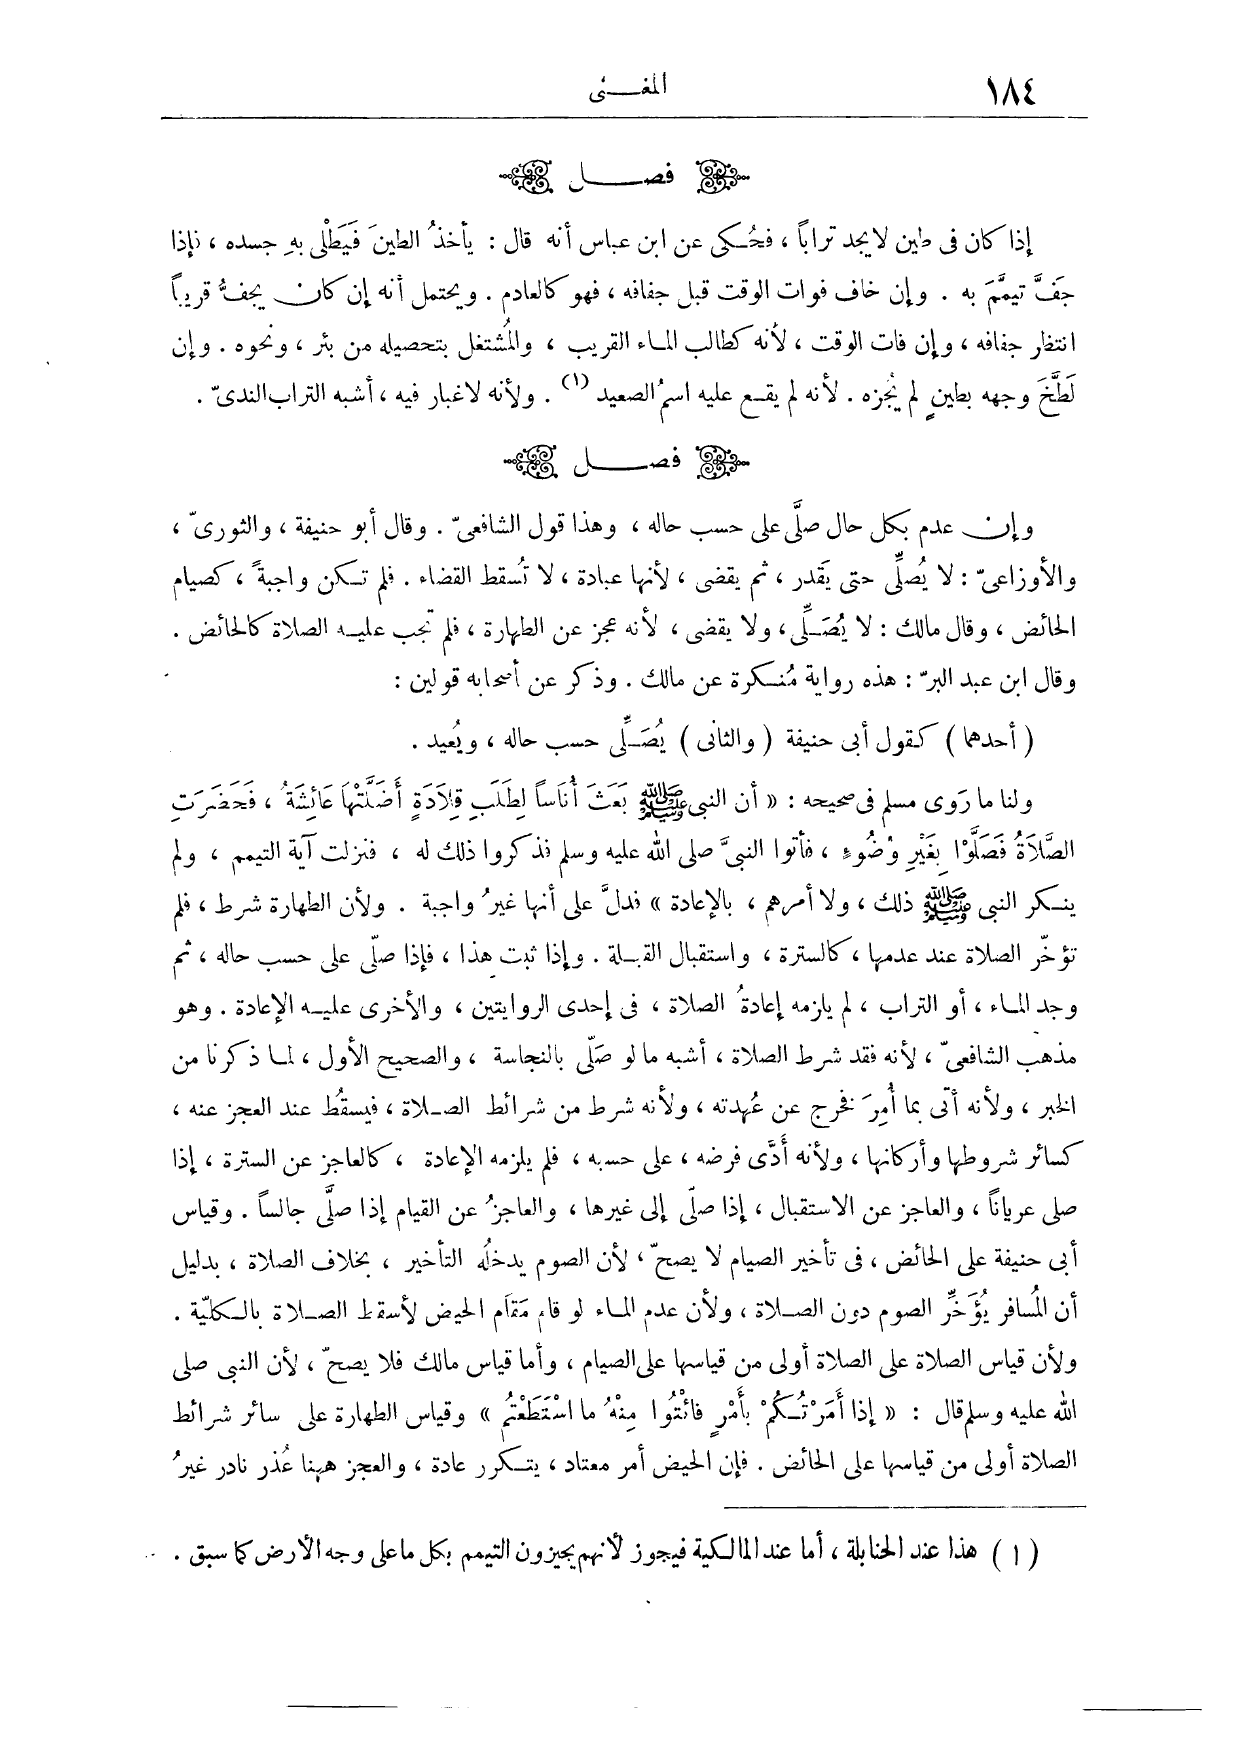 ١٨٤
المغـنى
فصـــل
إذا كان فى طين لا يجد تراباً ، فحُـكى عن ابن عباس أنه قال : يأخذُ الطينَ فَيَطْلى بهِ جسده ، فإذا
جَفَّ تيمَّمَ به . وإن خاف فوات الوقت قبل جفافه ، فهو كالعادم . ويحتمل أنه إن كان يجفُّ قريباً
انتظر جفافه ، وإن فات الوقت ، لأنه كطالب المـاء القريب ، والمُشتغل بتحصيله من بئر ، ونحوه . وإن
لَطَّخَ وجهه بطينٍ لم يُجزه . لأنه لم يقـع عليه اسمُ الصعيد (١) . ولأنه لا غبار فيه ، أشبه التراب الندىّ .
فصـــل
وإن عدم بكل حال صلَّى على حسب حاله ، وهذا قول الشافعىّ . وقال أبو حنيفة ، والثورىّ ،
والأوزاعىّ : لا يُصلِّى حتى يَقدر ، ثم يقضى ، لأنها عبادة ، لا تُسقط القضاء . فلم تـكن واجبةً ، كصيام
الحائض ، وقال مالك : لا يُصَـلِّى ، ولا يقضى ، لأنه عجز عن الطهارة ، فلم تجب عليـه الصلاة كالحائض .
وقال ابن عبد البرّ : هذه رواية مُنـكرة عن مالك . وذكر عن أصحابه قولين :
( أحدهما ) كـقول أبى حنيفة ( والثانى ) يُصَـلِّى حسب حاله ، ويُعيد .
ولنا ما رَوى مسلم فى صحيحه : « أن النبى ﷺ بَعَثَ أُنَاساً لِطَلَبِ قِلَادَةٍ أَضَلَّتْهَا عَائِشَةُ ، فَحَضَرَتِ
الصَّلَاةُ فَصَلَّوْا بِغَيْرِ وُضُوءٍ ، فأتوا النبىَّ صلى الله عليه وسلم فذكروا ذلك له ، فنزلت آية التيمم ، ولم
ينـكر النبى ﷺ ذلك ، ولا أمرهم ، بالإعادة » فدلَّ على أنها غيرُ واجبة . ولأن الطهارة شرط ، فلم
تؤخّر الصلاة عند عدمها ، كالسترة ، واستقبال القبـلة . وإذا ثبت هذا ، فإذا صلّى على حسب حاله ، ثم
وجد المـاء ، أو التراب ، لم يلزمه إعادةُ الصلاة ، فى إحدى الروايتين ، والأخرى عليـه الإعادة . وهو
مذهب الشافعىّ ، لأنه فقد شرط الصلاة ، أشبه ما لو صَلّى بالنجاسة ، والصحيح الأول ، لمـا ذكرنا من
الخبر ، ولأنه أتى بما أُمِرَ فخرج عن عُهدته ، ولأنه شرط من شرائط الصـلاة ، فيسقُط عند العجز عنه ،
كسائر شروطها وأركانها ، ولأنه أَدَّى فرضه ، على حسبه ، فلم يلزمه الإعادة ، كالعاجز عن السترة ، إذا
صلى عرياناً ، والعاجز عن الاستقبال ، إذا صلّى إلى غيرها ، والعاجزُ عن القيام إذا صلَّى جالساً . وقياس
أبى حنيفة على الحائض ، فى تأخير الصيام لا يصحّ ، لأن الصوم يدخلُه التأخير ، بخلاف الصلاة ، بدليل
أن المُسافر يُؤَخِّر الصوم دون الصـلاة ، ولأن عدم المـاء لو قام مَقاَم الحيض لأسقط الصـلاة بالـكليّة .
ولأن قياس الصلاة على الصلاة أولى من قياسها على الصيام ، وأما قياس مالك فلا يصحّ ، لأن النبى صلى
الله عليه وسلم قال : « إذا أَمَرْتُـكُمْ بأَمْرٍ فائْتُوا مِنْهُ ما اسْتَطَعْتُم » وقياس الطهارة على سائر شرائط
الصلاة أولى من قياسها على الحائض . فإن الحيض أمر معتاد ، يتـكرر عادة ، والعجز ههنا عُذر نادر غيرُ
( ١ ) هذا عند الحنابلة ، أما عند المالـكية فيجوز لأنهم يجيزون التيمم بكل ما على وجه الأرض كما سبق .